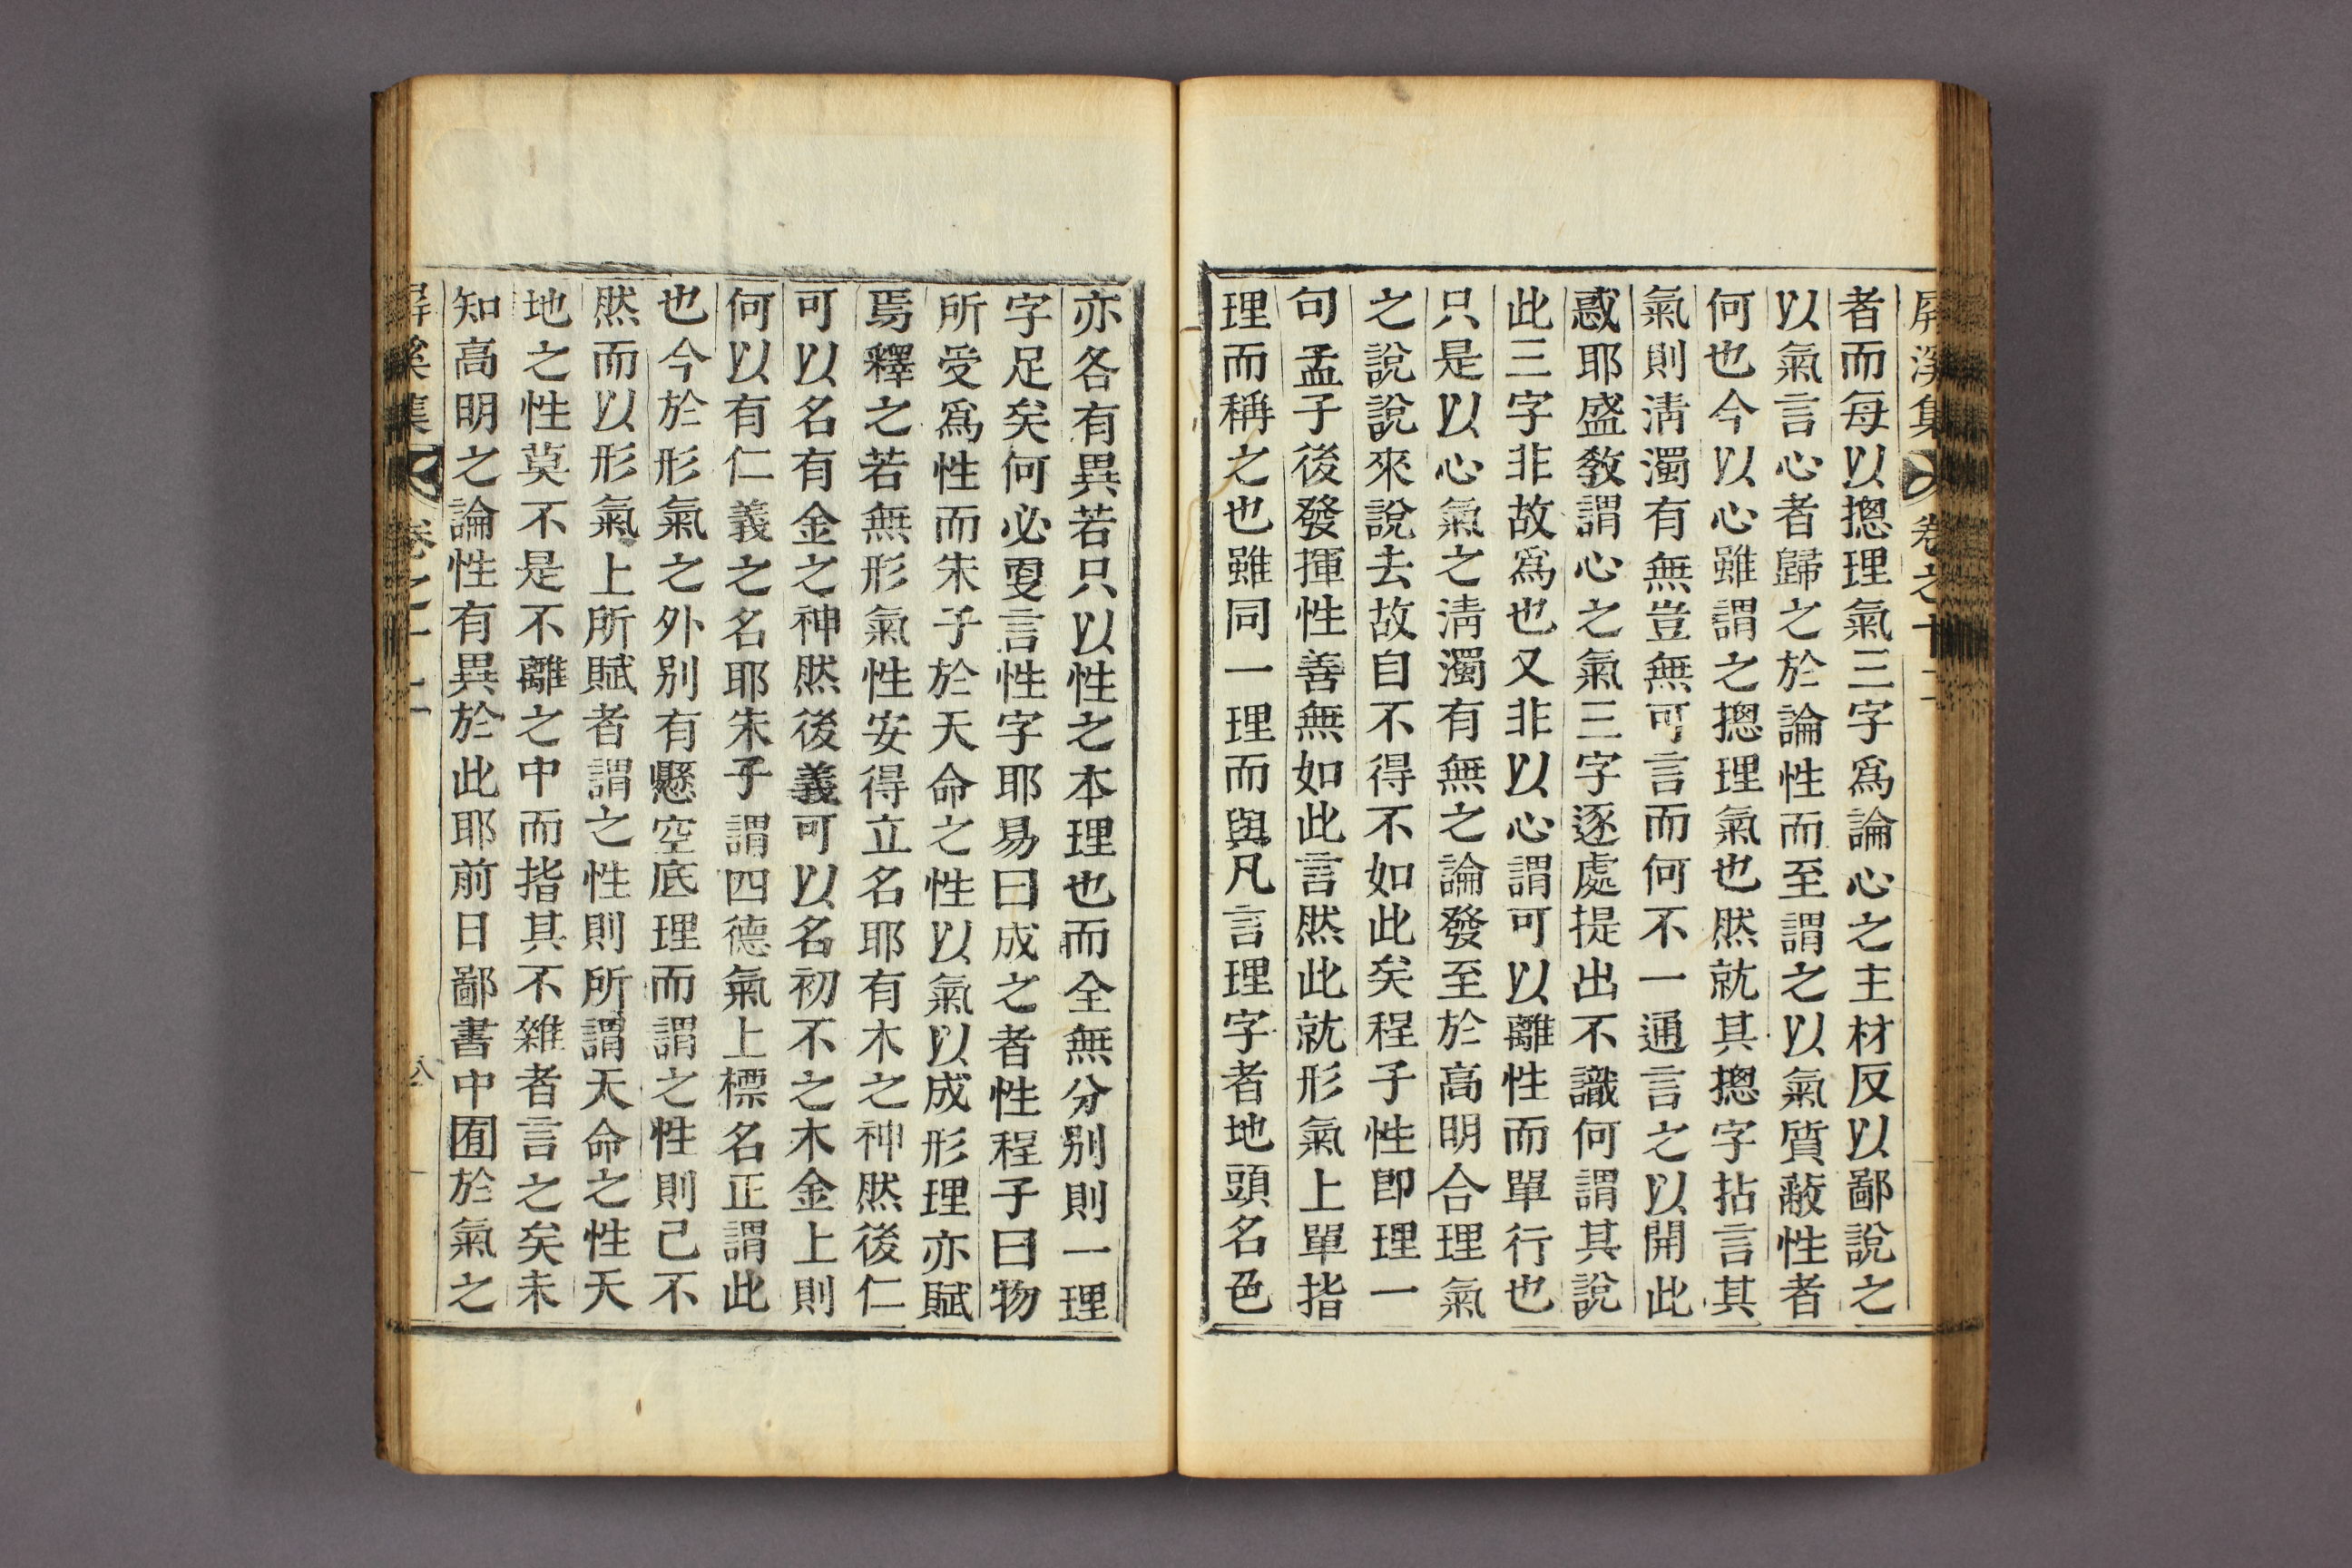 屛溪集 卷之十二
者而每以摠理氣三字爲論心之主材反以鄙說之
以氣言心者歸之於論性而至謂之以氣質蔽性者
何也今以心雖謂之摠理氣也然就其摠字拈言其
氣則淸濁有無豈無可言而何不一通言之以開此
惑耶盛敎謂心之氣三字逐處提出不識何謂其說
此三字非故爲也又非以心謂可以離性而單行也
只是以心氣之淸濁有無之論發至於高明合理氣
之說說來說去故自不得不如此矣程子性卽理一
句孟子後發揮性善無如此言然此就形氣上單指
理而稱之也雖同一理而與凡言理字者地頭名色
亦各有異若只以性之本理也而全無分别則一理
字足矣何必更言性字耶易曰成之者性程子曰物
所受爲性而朱子於天命之性以氣以成形理亦賦
焉釋之若無形氣性安得立名耶有木之神然後仁
可以名有金之神然後義可以名初不之木金上則
何以有仁義之名耶朱子謂四德氣上標名正謂此
也今於形氣之外别有懸空底理而謂之性則已不
然而以形氣上所賦者謂之性則所謂天命之性天
地之性莫不是不離之中而指其不雜者言之矣未
知高明之論性有異於此耶前日鄙書中囿於氣之
屛溪集 卷之十二 八